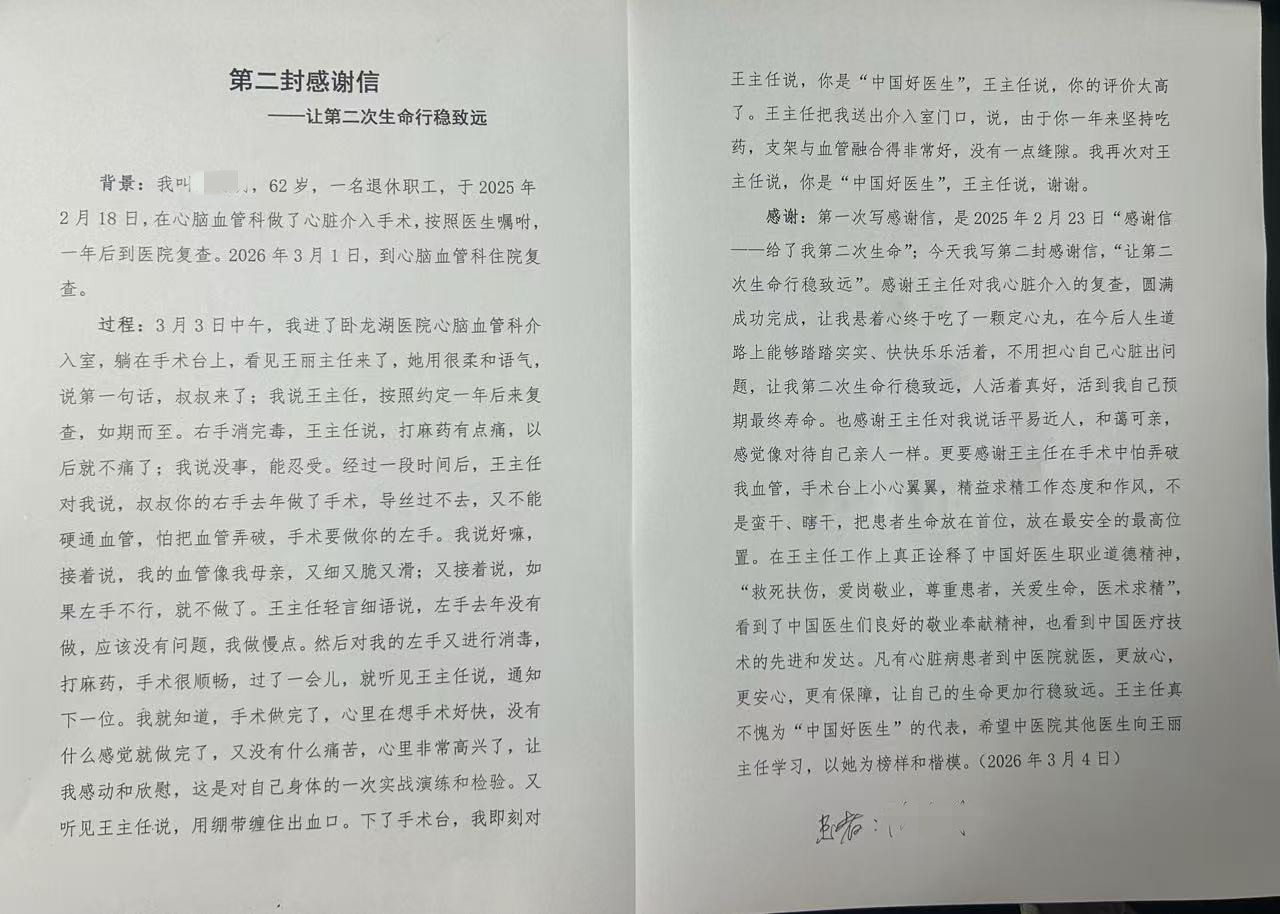 第二封感谢信
——让第二次生命行稳致远
背景：我叫，62岁，一名退休职工，于2025年
2月18日，在心脑血管科做了心脏介入手术，按照医生嘱咐，
一年后到医院复查。2026年3月1日，到心脑血管科住院复
查。
过程：3月3日中午，我进了卧龙湖医院心脑血管科介
入室，躺在手术台上，看见王丽主任来了，她用很柔和语气，
说第一句话，叔叔来了；我说王主任，按照约定一年后来复
查，如期而至。右手消完毒，王主任说，打麻药有点痛，以
后就不痛了；我说没事，能忍受。经过一段时间后，王主任
对我说，叔叔你的右手去年做了手术，导丝过不去，又不能
硬通血管，怕把血管弄破，手术要做你的左手。我说好嘛，
接着说，我的血管像我母亲，又细又脆又滑；又接着说，如
果左手不行，就不做了。王主任轻言细语说，左手去年没有
做，应该没有问题，我做慢点。然后对我的左手又进行消毒，
打麻药，手术很顺畅，过了一会儿，就听见王主任说，通知
下一位。我就知道，手术做完了，心里在想手术好快，没有
什么感觉就做完了，又没有什么痛苦，心里非常高兴了，让
我感动和欣慰，这是对自己身体的一次实战演练和检验。又
听见王主任说，用绷带缠住出血口。下了手术台，我即刻对
王主任说，你是“中国好医生”，王主任说，你的评价太高
了。王主任把我送出介入室门口，说，由于你一年来坚持吃
药，支架与血管融合得非常好，没有一点缝隙。我再次对王
主任说，你是“中国好医生”，王主任说，谢谢。
感谢：第一次写感谢信，是2025年2月23日“感谢信
——给了我第二次生命”；今天我写第二封感谢信，“让第二
次生命行稳致远”。感谢王主任对我心脏介入的复查，圆满
成功完成，让我悬着心终于吃了一颗定心丸，在今后人生道
路上能够踏踏实实、快快乐乐活着，不用担心自己心脏出问
题，让我第二次生命行稳致远，人活着真好，活到我自己预
期最终寿命。也感谢王主任对我说话平易近人，和蔼可亲，
感觉像对待自己亲人一样。更要感谢王主任在手术中怕弄破
我血管，手术台上小心翼翼，精益求精工作态度和作风，不
是蛮干、瞎干，把患者生命放在首位，放在最安全的最高位
置。在王主任工作上真正诠释了中国好医生职业道德精神，
“救死扶伤，爱岗敬业，尊重患者，关爱生命，医术求精”，
看到了中国医生们良好的敬业奉献精神，也看到中国医疗技
术的先进和发达。凡有心脏病患者到中医院就医，更放心，
更安心，更有保障，让自己的生命更加行稳致远。王主任真
不愧为“中国好医生”的代表，希望中医院其他医生向王丽
主任学习，以她为榜样和楷模。（2026年3月4日）
患者：